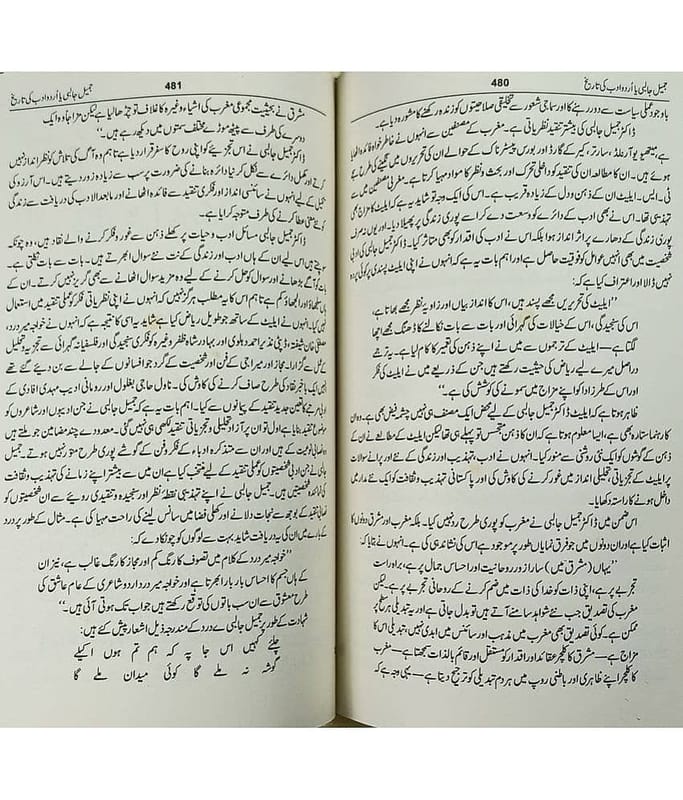 جمیل جالبی یا اُردو ادب کی تاریخ
480
باوجود عملی سیاست سے دور رہنے کا اور سماجی شعور سے تخلیقی صلاحیتوں کو زندہ رکھنے کا مشورہ دیا ہے۔
ڈاکٹر جمیل جالبی کی بیشتر تنقید نظریاتی ہے۔ مغرب کے مصنفین سے انہوں نے خاطر خواہ فائدہ اٹھایا
ہے، میتھیو آرنلڈ، سارتر، کیر کے گارڈ اور بورس پیسٹر ناک کے حوالے ان کی تحریروں میں نگینے کی طرح جڑے
ہوئے ہیں۔ ان کا مطالعہ ان کی تنقید کو داخلی تحرک اور بحث و نظر کا مواد مہیا کرتا ہے۔ مغربی مصنفین میں سے
ٹی۔ ایس۔ ایلیٹ ان کے ذہن و دل کے زیادہ قریب ہے۔ اس کی ایک وجہ تو شاید یہ ہے کہ ایلیٹ کا مزاج بھی
تہذیبی تھا۔ اس نے بھی ادب کے دائرے کو وسعت دے کر اسے پوری زندگی پر پھیلا دیا۔ اور یوں نہ صرف
پوری زندگی کے دھارے پر اثر انداز ہوا بلکہ اس نے ادب کی اقدار کو بھی متاثر کیا۔ ڈاکٹر جمیل جالبی کی ادبی
شخصیت میں بھی انہیں عوامل کو فوقیت حاصل ہے اور اہم بات یہ ہے کہ انہوں نے اپنی ایلیٹ پسندی پر کوئی پردہ
نہیں ڈالا اور اعتراف کیا ہے کہ:
”ایلیٹ کی تحریریں مجھے پسند ہیں، اس کا انداز بیاں اور زاویہ نظر مجھے بھاتا ہے،
اس کی سنجیدگی، اس کے خیالات کی گہرائی اور بات سے بات نکالنے کا ڈھنگ مجھے اچھا
لگتا ہے— ایلیٹ کے ترجموں سے میں نے اپنے ذہن کی تعمیر کا کام لیا ہے۔ یہ ترجمے
دراصل میرے لیے ریاض کی حیثیت رکھتے ہیں جن کے ذریعے میں نے ایلیٹ کی فکر
اور اس کے طرز ادا کو اپنے مزاج میں سمونے کی کوشش کی ہے۔“
ظاہر ہوتا ہے کہ ایلیٹ ڈاکٹر جمیل جالبی کے لیے محض ایک مصنف ہی نہیں چشمہ فیض بھی ہے۔ وہ ان
کا رہنما ستارہ بھی ہے، ایسا معلوم ہوتا ہے کہ ان کا ذہن متجسس تو پہلے ہی تھا لیکن ایلیٹ کے مطالعے نے ان کے
ذہن کے گوشوں کو ایک نئی روشنی سے منور کیا۔ انہوں نے ادب، تہذیب اور زندگی کے نئے اور پرانے سوالات
پر ایلیٹ کے تجزیاتی، تحلیلی انداز میں غور کرنے کی کاوش کی اور پاکستانی تہذیب و ثقافت کو ایک نئے مدار میں
داخل ہونے کا راستہ دکھایا۔
اس ضمن میں ڈاکٹر جمیل جالبی نے مغرب کو پوری طرح رد نہیں کیا۔ بلکہ مغرب اور مشرق دونوں کا
اثبات کیا ہے اور ان دونوں میں جو فرق نمایاں طور پر موجود ہے اس کی نشاندہی کی ہے۔ انہوں نے بتایا کہ:
”یہاں (مشرق میں) سارا زور روحانیت اور احساس جمال پر ہے، براہ راست
تجربے پر ہے، اپنی ذات کو خدا کی ذات میں ضم کرنے کے روحانی تجربے پر ہے۔ لیکن
مغرب کی تصدیق جب نئے شواہد سامنے آتے ہیں تو بدل جاتی ہے اور یہ تبدیلی ہر سطح پر
ممکن ہے۔ کوئی تصدیق بھی مغرب میں مذہب اور سائنس میں ابدی نہیں، تبدیلی اس کا
مزاج ہے— مشرق کا کلچر عقائد اور اقدار کو مستقل اور قائم بالذات سمجھتا ہے— مغرب
کا کلچر اپنے ظاہری اور باطنی روپ میں ہر دم تبدیلی کو ترجیح دیتا ہے— یہی وجہ ہے کہ
جمیل جالبی یا اُردو ادب کی تاریخ
481
مشرق نے بحیثیت مجموعی مغرب کی اشیاء وغیرہ کا غلاف تو چڑھا لیا ہے لیکن مزاجاً وہ ایک
دوسرے کی طرف سے پیٹھ موڑے مختلف سمتوں میں دیکھ رہے ہیں۔“
ڈاکٹر جمیل جالبی نے اس تجزیے کو اپنی روح کا سفر قرار دیا ہے تاہم وہ آگہی کی تلاش کو نظر انداز نہیں
کرتے اور مکمل دائرے سے نکل کر نیا دائرہ بنانے کی ضرورت پر سب سے زیادہ زور دیتے ہیں۔ اس آرزو کی
تکمیل کے لیے انہوں نے سائنسی انداز اور فکری تنقید سے فائدہ اٹھانے اور مابعد الادب کی دریافت سے زندگی
کو نئے معنی عطا کرنے کی طرف متوجہ کرایا ہے۔
ڈاکٹر جمیل جالبی مسائل ادب و حیات پر کھلے ذہن سے غور و فکر کرنے والے نقاد ہیں، وہ چونکہ
سوچتے ہیں اس لیے ان کے ہاں ادب اور زندگی کے نت نئے سوال ابھرتے ہیں۔ بات سے بات نکلتی ہے۔
بات کو آگے بڑھانے اور سوال کو حل کرنے کے لیے وہ مزید سوال اٹھانے سے بھی گریز نہیں کرتے۔ ان کے
ہاں پھیلاؤ اور الجھاؤ کم ہے تاہم اس کا یہ مطلب ہرگز نہیں کہ انہوں نے اپنی نظریاتی فکر کو عملی تنقید میں استعمال
نہیں کیا۔ انہوں نے ایلیٹ کے ساتھ جو طویل ریاض کیا ہے شاید یہ اسی کا نتیجہ ہے کہ انہوں نے خواجہ میر درد،
مصطفی خان شیفتہ، ڈپٹی نذیر احمد دہلوی اور بہادر شاہ ظفر وغیرہ کو فکری سنجیدگی اور فلسفیانہ گہرائی سے تجزیہ و تحلیل
کے عمل سے گزارا۔ مجاز اور میراجی کے فن اور شخصیت کے گرد جو افسانوں کے جالے سے بن دیے گئے تھے
انہیں ایک باخبر نقاد کی طرح صاف کرنے کی کاوش کی۔ ناول حاجی بغلول اور رومانی ادیب مہدی افادی کے
ادبی مرتبے کا تعین جدید تنقید کے پیمانوں سے کیا۔ اہم بات یہ ہے کہ جمیل جالبی نے جن ادیبوں اور شاعروں کو
موضوع تنقید بنایا ہے اول تو ان پر آزاد تحلیلی و تجزیاتی تنقید لکھی ہی نہیں گئی۔ معدودے چند مضامین جو ملتے ہیں
نصابی نوعیت کے ہیں اور ان سے متذکرہ ادباء کے فکر و فن کے گوشے پوری طرح منور نہیں ہوتے۔ جمیل
جالبی نے جن ادبی شخصیتوں کو عملی تنقید کے لیے منتخب کیا ہے ان میں سے بیشتر اپنے زمانے کی تہذیب و ثقافت
کی نمائندہ شخصیتیں ہیں۔ جمیل جالبی نے اپنے تہذیبی نقطۂ نظر اور سنجیدہ و تنقیدی رویے سے ان شخصیتوں کو
نصابی تنقید کے بوجھ سے نجات دلانے اور کھلی فضا میں سانس لینے کی راحت مہیا کی ہے۔ مثال کے طور پر درد
کے بارے میں ان کی یہ دریافت شاید بہت سے لوگوں کو چونکا دے کہ:
”خواجہ میر درد کے کلام میں تصوف کا رنگ کم اور مجاز کا رنگ غالب ہے، نیز ان
کے ہاں جسم کا احساس بار بار ابھرتا ہے اور خواجہ میر درد اردو شاعری کے عام عاشق کی
طرح معشوق سے ان سب باتوں کی توقع رکھتے ہیں جو اب تک ہوتی آئی ہیں۔“
شہادت کے طور پر جمیل جالبی نے درد کے مندرجہ ذیل اشعار پیش کئے ہیں:
چلئے کہیں اس جا پہ کہ ہم تم ہوں اکیلے
گوشہ نہ ملے گا کوئی میدان ملے گا